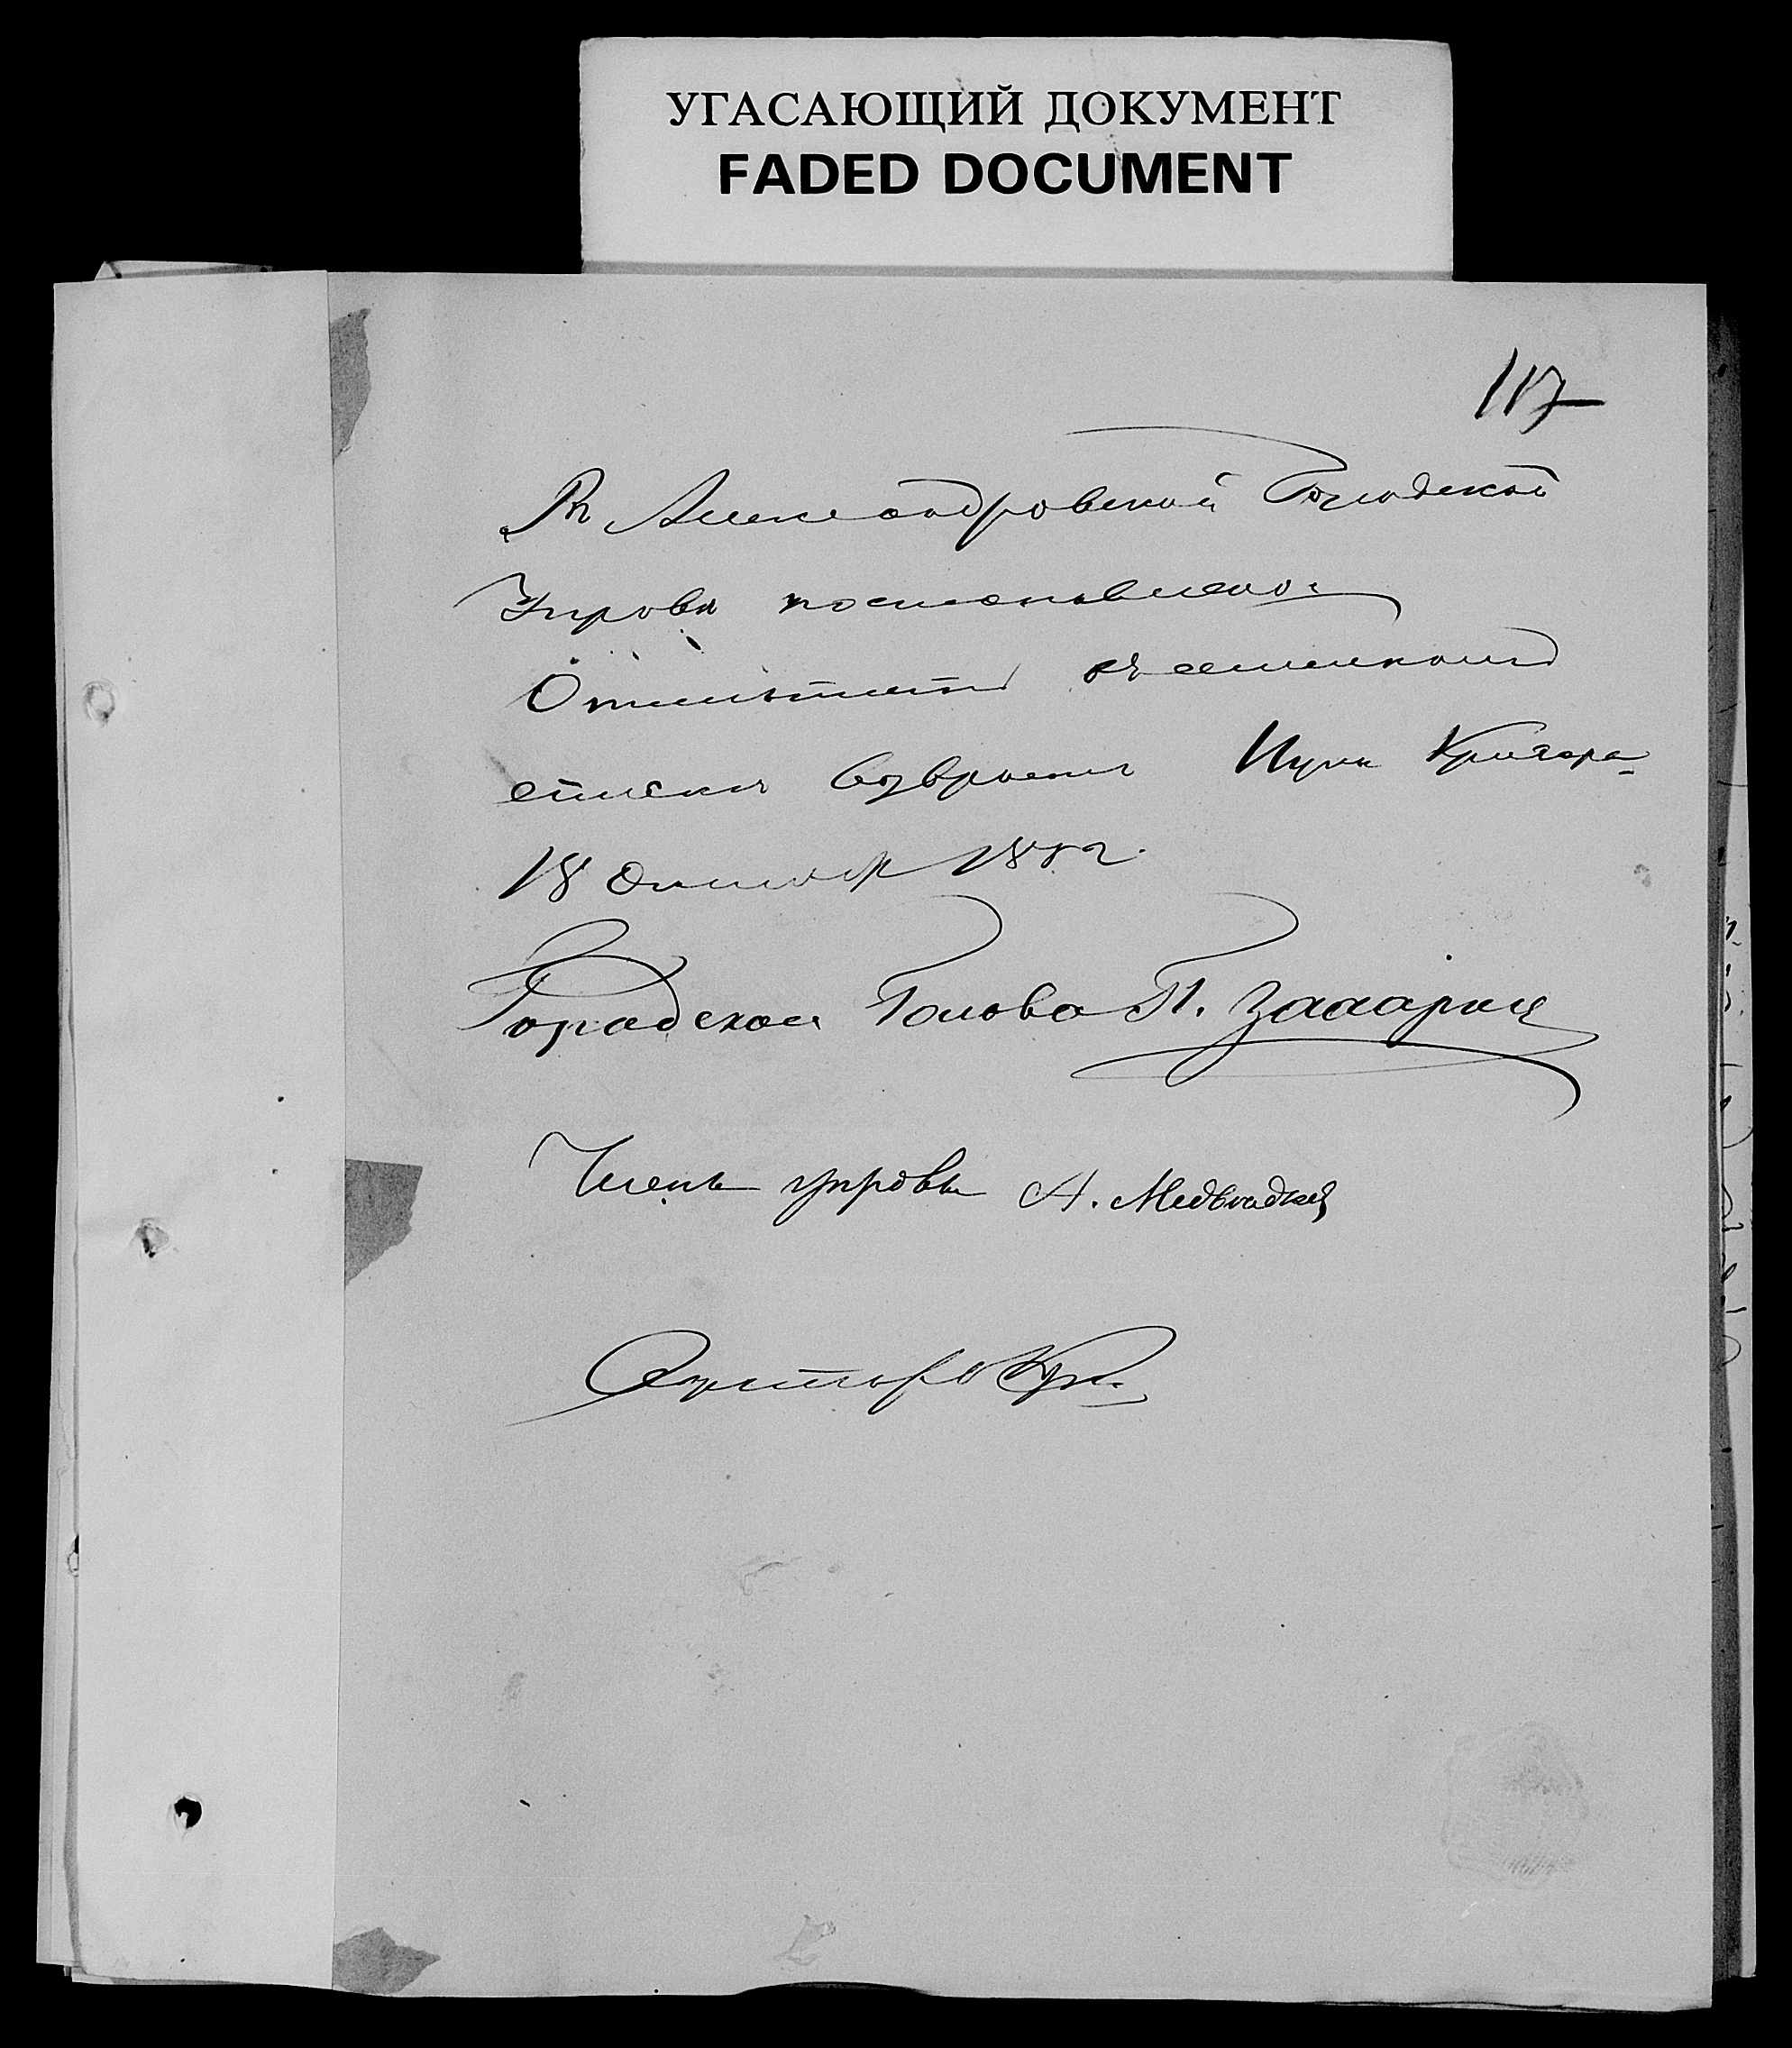 УГАСАЮЩИЙ ДОКУМЕНТ
FADED DOCUMENT
117
Въ Александровской Городской
Управѣ постановлено:
Отмѣтить въ семейномъ
спискѣ возврастъ
18 Октября 188
Городской Голова П. Захаріи
Членъ управы А.